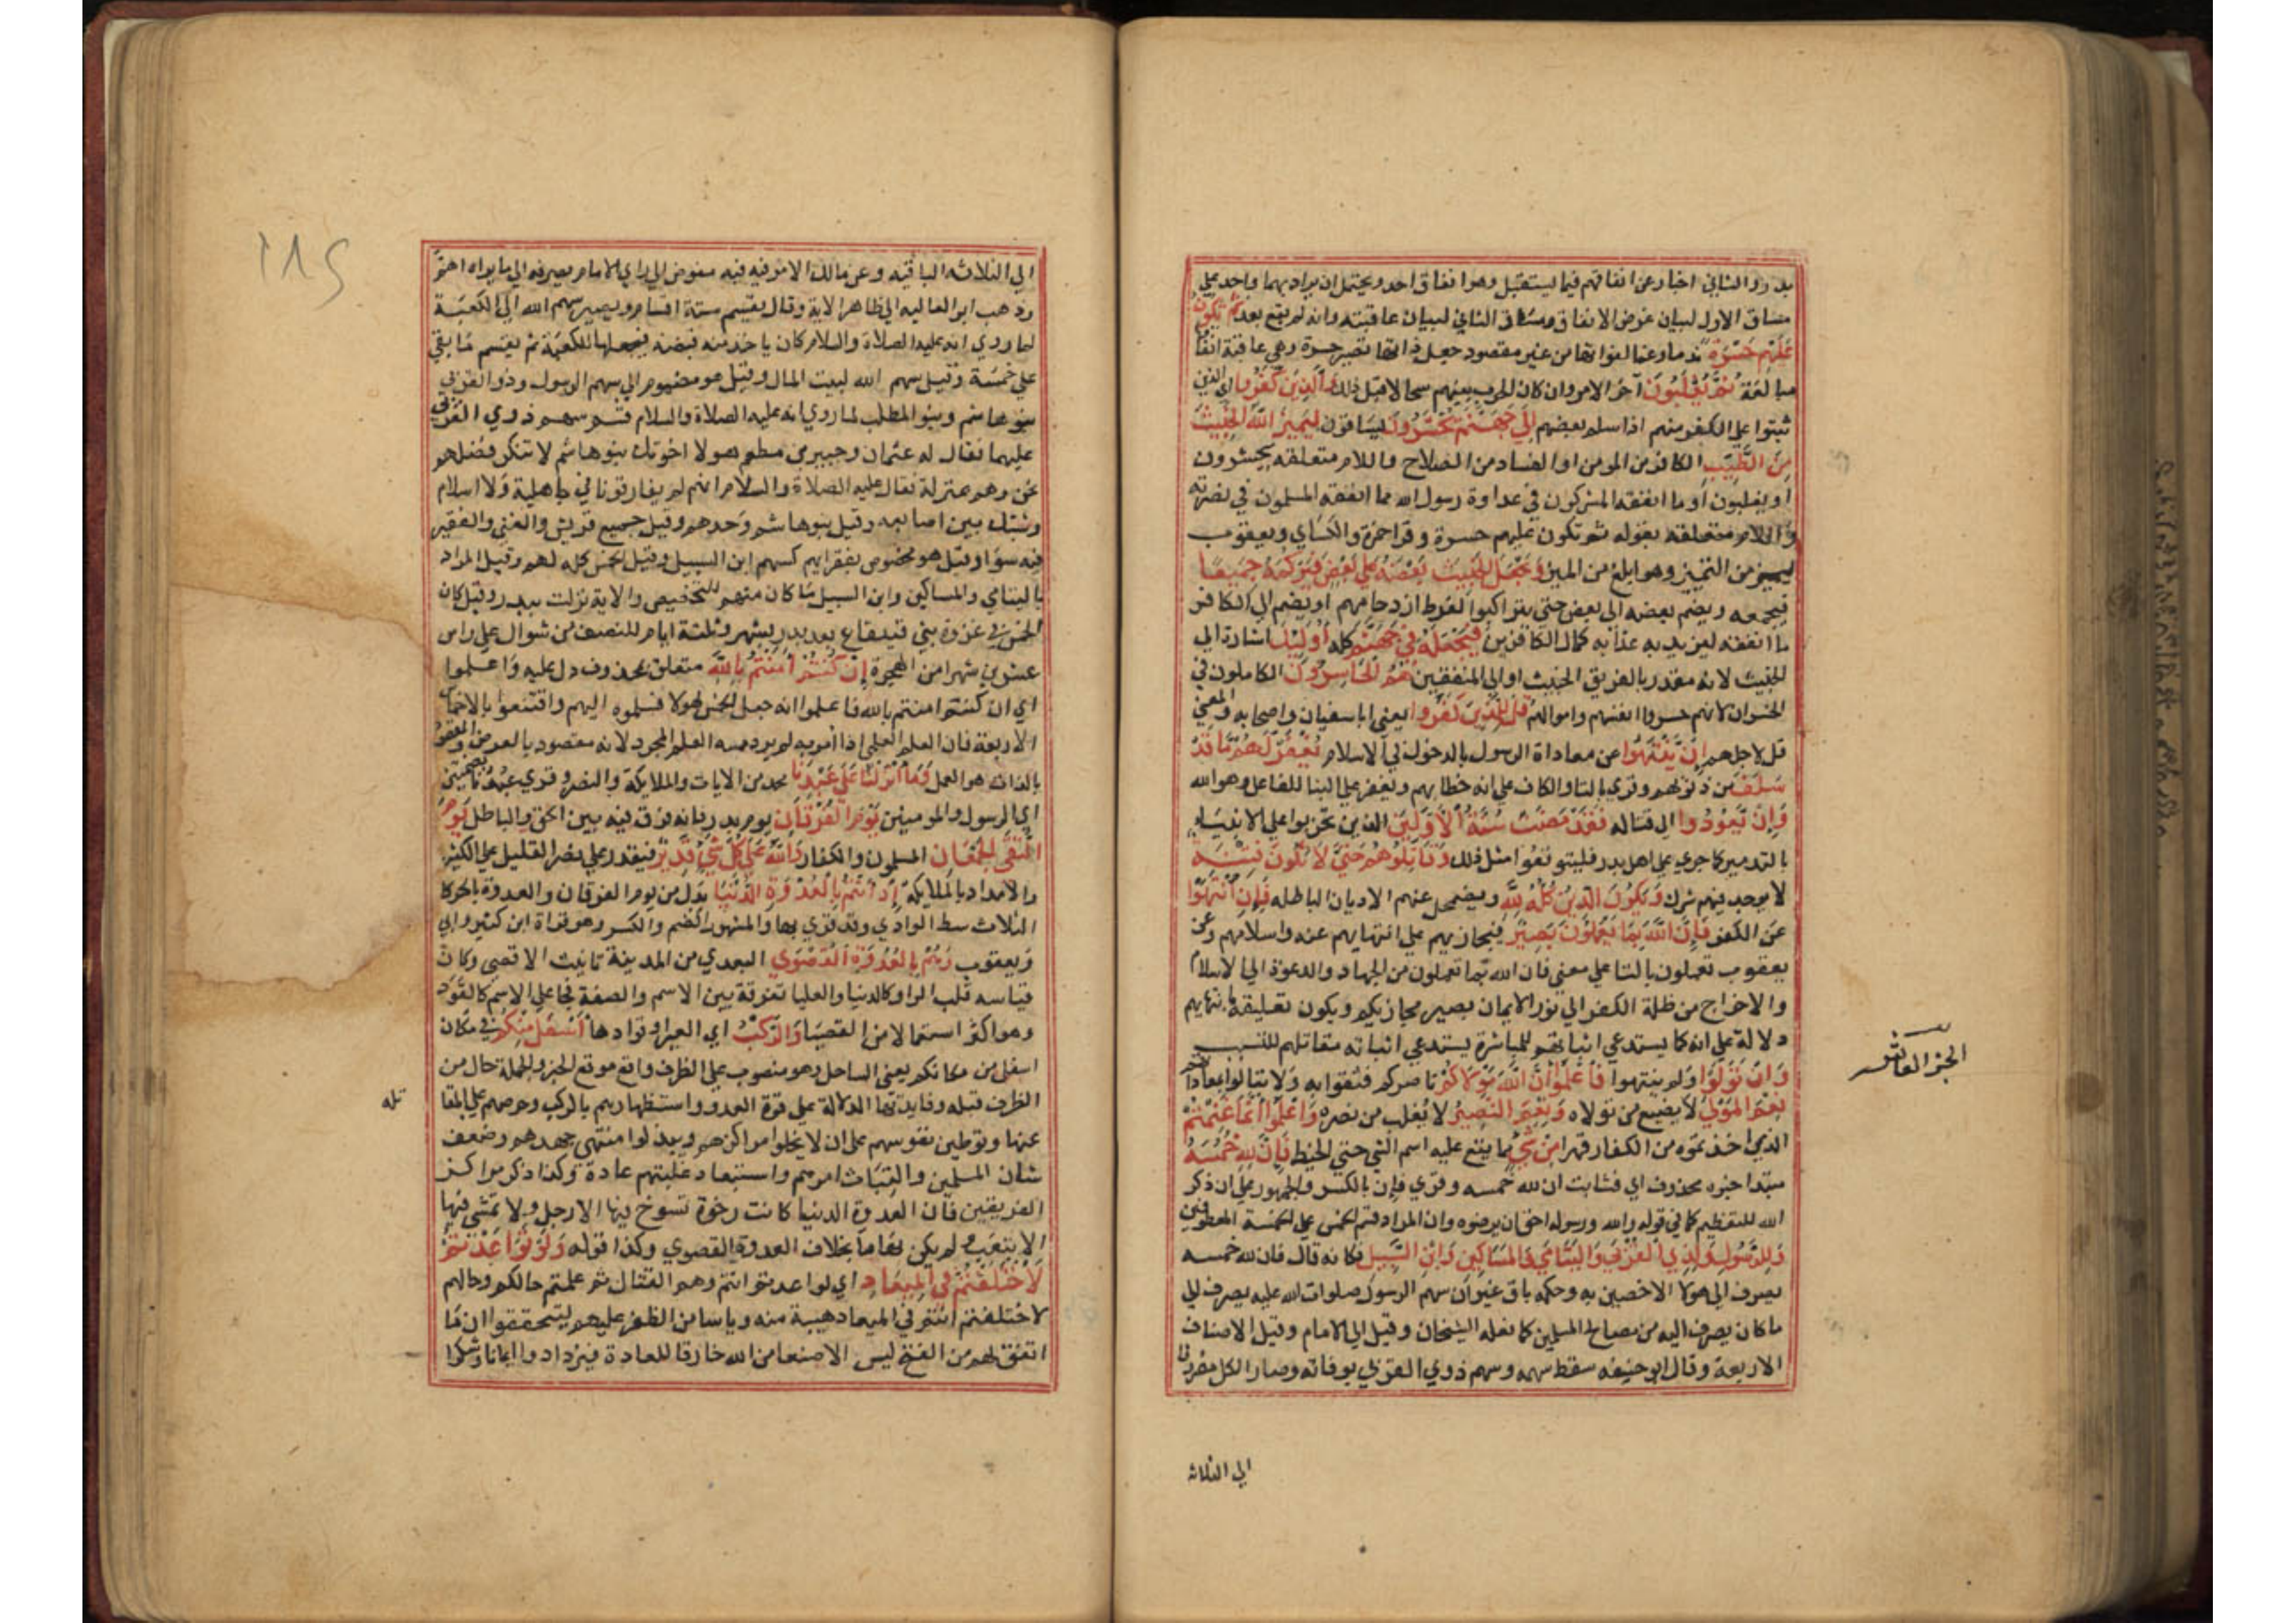 بدر والثاني اخبار عن انفاقهم فيما يستقبل وهو انفاق احد ويحتمل ان يراد بهما واحد على
مساق الاول لبيان غرض الانفاق ومساق الثاني لبيان عاقبته وانه لم يقع بعد ثم تكون
عليهم حسرة ندما وغما لفواتها من غير مقصود جعل ذاتها تصير حسرة وهي عاقبة انفاقها
مبالغة ثم يغلبون آخر الامر وان كان الحرب بينهم سجالا قبل ذلك والذين كفروا اي الذين
ثبتوا على الكفر منهم اذا سلم بعضهم الى جهنم يحشرون يساقون ليميز الله الخبيث
من الطيب الكافر من المومن او الفساد من الصلاح واللام متعلقه بيحشرون
او يغلبون او ما انفقه المشركون في عداوة رسول الله مما انفقه المسلمون في نصرته
واللام متعلقه بقوله ثم تكون عليهم حسرة وقرا حمزة والكساي ويعقوب
ليميز من التمييز وهو ابلغ من الميز ويجعل الخبيث بعضه على بعض فيركمه جميعا
فيجمعه ويضم بعضه الى بعض حتى يتراكبوا لفرط ازدحامهم او يضم الى الكافر
ما انفقه ليزيد به عذابه كمال الكافرين فيجعله في جهنم كله اوليك اشارة الى
الخبيث لانه مقدر بالفريق الخبيث او الى المنفقين هم الخاسرون الكاملون في
الخسران لانهم خسروا انفسهم واموالهم قل للذين كفروا يعني ابا سفيان واصحابه والمعنى
قل لاجلهم ان ينتهوا عن معاداة الرسول بالدخول في الاسلام يغفر لهم ما قد
سلف من ذنوبهم وقري بالتا والكاف على انه خطابهم ويغفر على البنا للفاعل وهو الله
وان يعودوا الى قتاله فقد مضت سنة الاولين الذين تحزبوا على الانبياء
بالتدمير كما جري على اهل بدر فليتوقعوا مثل ذلك وقاتلوهم حتى لا تكون فتنة
لا يوجد فيهم شرك ويكون الدين كله لله ويضمحل عنهم الاديان الباطله فان انتهوا
عن الكفر فان الله بما يعملون بصير فيجازيهم على انتهايهم عنه واسلامهم وعن
يعقوب تعملون بالتا على معنى فان الله بما تعملون من الجهاد والدعوة الى الاسلام
والاخراج من ظلمة الكفر الى نور الايمان بصير مجازيكم ويكون تعليقه بانتهايهم
دلالة على انه كما يستدعي اثباتهم للمباشرة يستدعي اثباته مقاتلهم للتسبب
وان تولوا ولم ينتهوا فاعلموا ان الله مولاكم ناصركم فثقوا به ولا تبالوا بمعاداتهم
نعم المولى لا يضيع من تولاه ونعم النصير لا يغلب من نصره واعلموا انما غنمتم
الجز العاشر
الذي اخذتموه من الكفار قهرا من شي مما يقع عليه اسم الشي حتى الخيط فان لله خمسه
مبتدا خبره محذوف اي فثابت ان لله خمسه وقري فإن بالكسر والجمهور على ان ذكر
الله للتعظيم كما في قوله والله ورسوله احق ان يرضوه وان المراد قسم الخمس على الخمسة المعطوفين
وللرسول ولذي القربى واليتامى والمساكين وابن السبيل فكانه قال فان لله خمسه
يصرف الى هولا الاخصين به وحكمه باق غير ان سهم الرسول صلوات الله عليه يصرف الى
ما كان يصرف اليه من مصالح المسلمين كما فعله الشيخان وقيل الى الامام وقيل الاصناف
الاربعة وقال ابو حنيفه سقط سهمه وسهم ذوي القربى بوفاته وصار الكل مصروفا
الى الثلاثه
الى الثلاثه الباقيه وعن مالك الامر فيه مفوض الى راي الامام يصرفه الى ما يراه اهم
وذهب ابو العاليه الى ظاهر الاية وقال يقسم ستة اقسام ويصير سهم الله الى الكعبة
لما روي انه عليه الصلاة والسلام كان ياخذ منه قبضه فيجعلها للكعبة ثم يقسم ما بقي
على خمسة وقيل سهم الله لبيت المال وقيل هو مضموم الى سهم الرسول وذو القربى
بنو هاشم وبنو المطلب لما روي انه عليه الصلاة والسلام قسم سهم ذوي القربى
عليهما فقال له عثمان وجبير بن مطعم هولا اخوتك بنو هاشم لا تنكر فضلهم
عن وهم بمنزلة فقال عليه الصلاة والسلام انهم لم يفارقونا في جاهلية ولا اسلام
وشبك بين اصابعه وقيل بنو هاشم وحدهم وقيل جميع قريش والغني والفقير
فيه سوا وقيل هو مخصوص بفقرايهم كسهم ابن السبيل وقيل الخمس كله لهم وقيل المراد
باليتامي والمساكين وابن السبيل ما كان منهم للتخصيص والاية نزلت ببدر وقيل كان
الخمس في غزوة بني قينقاع بعد بدر بشهر وثلثة ايام للنصف من شوال على راس
عشرين شهرا من الهجرة ان كنتم امنتم بالله متعلق بمحذوف دل عليه واعلموا
اي ان كنتم امنتم بالله فاعلموا انه جعل الخمس لهولا فسلموه اليهم واقتنعوا بالاخماس
الاربعة فان العلم العملي اذا امر به لم يرد منه العلم المجرد لانه مقصود بالعرض والمقصود
بالذات هو العمل وما انزلنا على عبدنا محمد من الايات والملايكة والنصر وقري عبدنا بضمتين
اي الرسول والمومنين يوم الفرقان يوم بدر فانه فرق فيه بين الحق والباطل يوم
التقى الجمعان المسلمون والكفار والله على كل شي قدير فيقدر على نصر القليل على الكثير
والامداد بالملايكة اذ انتم بالعدوة الدنيا بدل من يوم الفرقان والعدوة بالحركات
الثلاث شط الوادي وقد قري بها والمشهور الضم والكسر وهو قراة ابن كثير وابي
ويعقوب وهم بالعدوة القصوى البعدي من المدينة تانيث الاقصى وكان
قياسه قلب الواو كالدنيا والعليا تفرقة بين الاسم والصفة فجا على الاسم كالقود
وهو اكثر استعمالا من القصيا والركب اي العير او قوادها اسفل منكم في مكان
اسفل من مكانكم يعني الساحل وهو منصوب على الظرف واقع موقع الخبر والجملة حال من
الظرف قبله وفايدتها الدلالة على قوة العدو واستظهارهم بالركب وحرصهم على المقا
تله
عنها وتوطين نفوسهم على ان لا يخلوا مراكزهم ويبذلوا منتهى جهدهم وضعف
شان المسلمين والتياث امرهم واستبعاد غلبتهم عادة وكذا ذكر مراكز
الفريقين فان العدوة الدنيا كانت رخوة تسوخ فيها الارجل ولا تمشي فيها
الا بتعب ولم يكن بها ما بخلاف العدوة القصوي وكذا قوله ولو تواعدتم
لاختلفتم في الميعاد اي لو تواعدتم انتم وهم القتال ثم علمتم حالكم وحالهم
لاختلفتم انتم في الميعاد هيبة منه وياسا من الظفر عليهم ليتحققوا ان ما
اتفق لهم من الفتح ليس الا صنعا من الله خارقا للعادة فيزدادوا ايمانا وشكرا